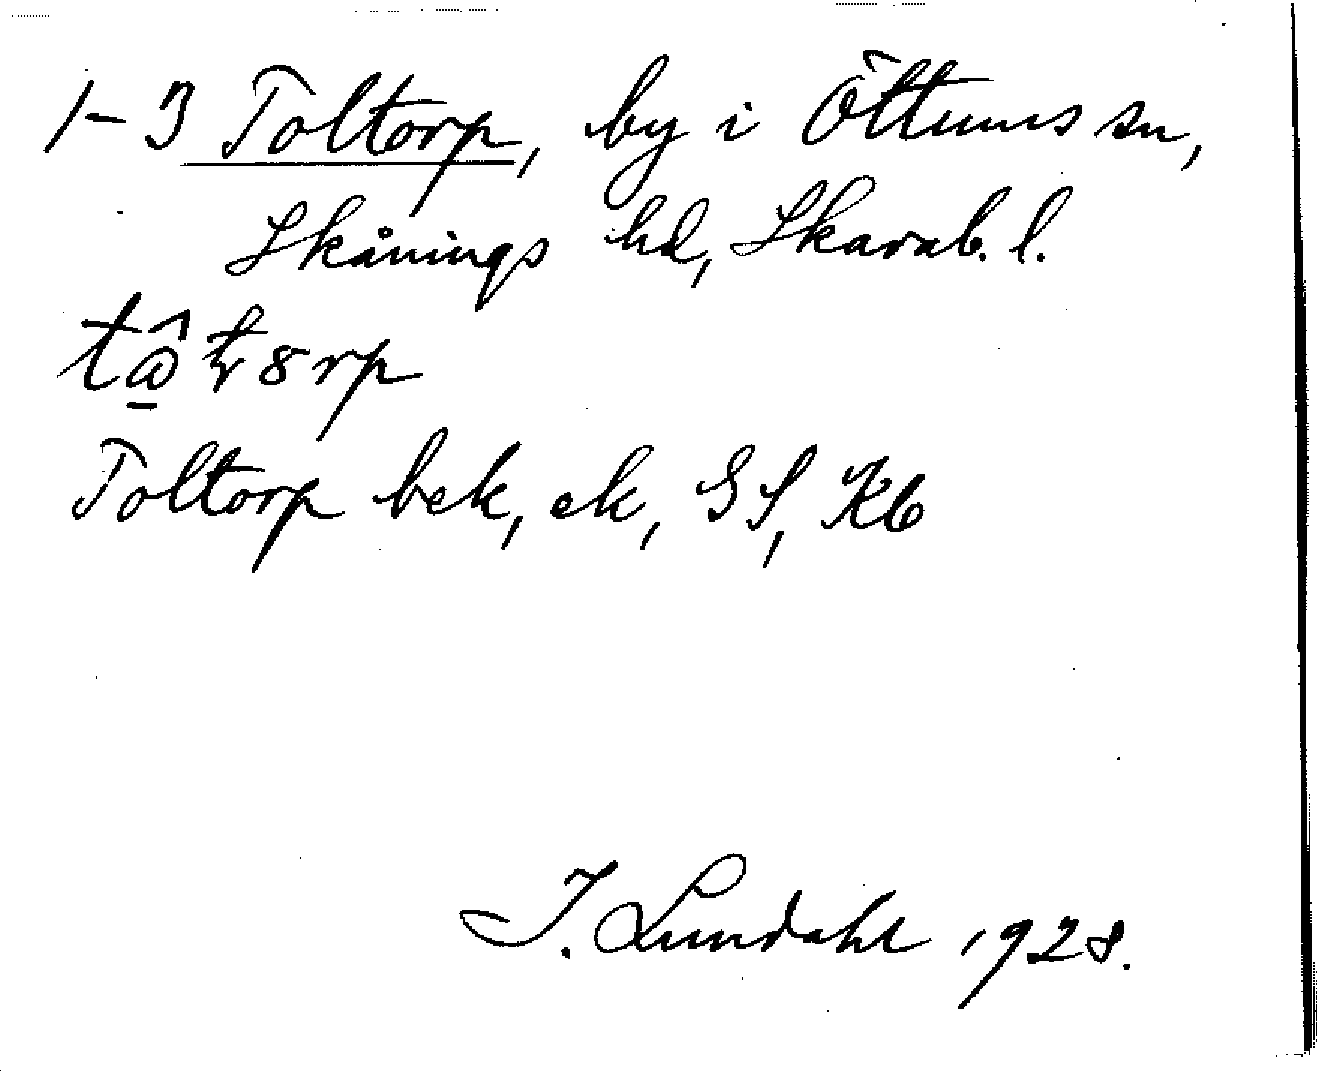 1-3 Toltorp, by i Öttums sn,
Skånings hd, Skarab. l.
Toltorp bek, ek, GS, Kb
I. Lundahl 1928.